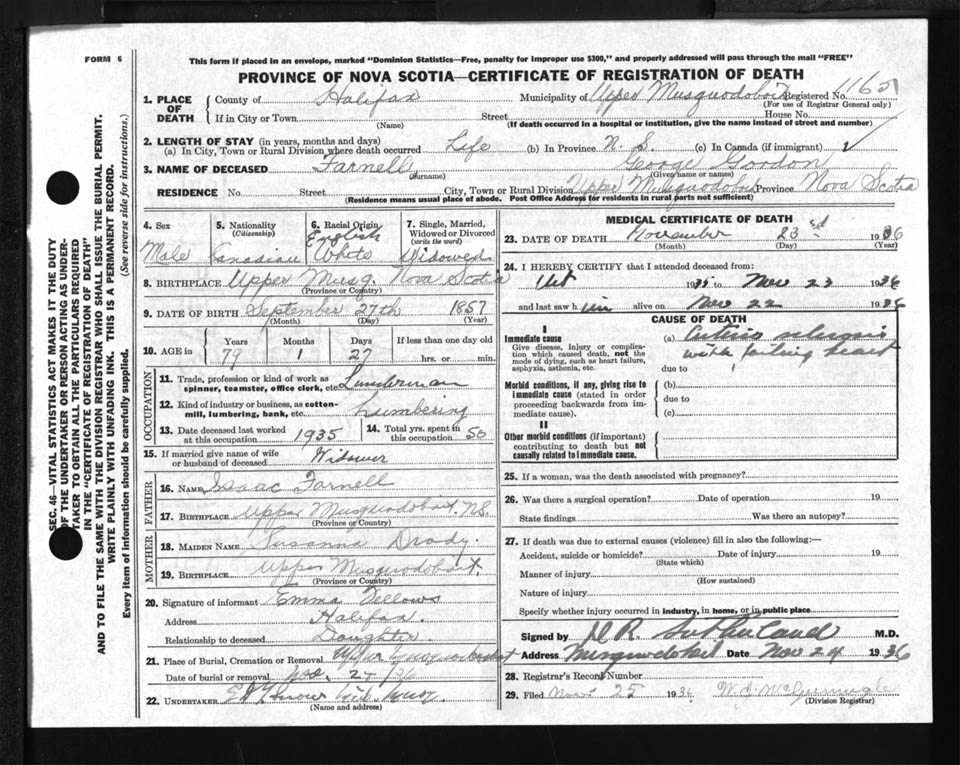 FORM 6
This form if placed in an envelope, marked "Dominion Statistics—Free, penalty for improper use $300," and properly addressed will pass through the mail "FREE"
PROVINCE OF NOVA SCOTIA—CERTIFICATE OF REGISTRATION OF DEATH
1. PLACE OF DEATH County of Halifax Municipality of Upper Musquodoboit Registered No.
(For use of Registrar General only)
If in City or Town Street House No.
(Name) (If death occurred in a hospital or institution, give the name instead of street and number)
2. LENGTH OF STAY (in years, months and days)
(a) In City, Town or Rural Division where death occurred Life (b) In Province N. S. (c) In Canada (if immigrant)
3. NAME OF DECEASED Farnell George Gordon
(Surname) (Given name or names)
RESIDENCE No. Street City, Town or Rural Division Upper Musquodoboit Province Nova Scotia
(Residence means usual place of abode. Post Office Address for residents in rural parts not sufficient)
4. Sex 5. Nationality (Citizenship) 6. Racial Origin 7. Single, Married, Widowed or Divorced (write the word)
Male Canadian English White Widowed
8. BIRTHPLACE Upper Musq. Nova Scotia
(Province or Country)
9. DATE OF BIRTH September 27th 1857
(Month) (Day) (Year)
10. AGE in Years Months Days If less than one day old
79 1 27 hrs. or min.
OCCUPATION
11. Trade, profession or kind of work as spinner, teamster, office clerk, etc. Lumberman
12. Kind of industry or business, as cotton-mill, lumbering, bank, etc. Lumbering
13. Date deceased last worked at this occupation 1935 14. Total yrs. spent in this occupation 50
15. If married give name of wife or husband of deceased Widower
FATHER
16. NAME Isaac Farnell
17. BIRTHPLACE Upper Musquodoboit. N.S.
(Province or Country)
MOTHER
18. MAIDEN NAME Susanna
19. BIRTHPLACE Upper Musquodoboit.
(Province or Country)
20. Signature of informant Emma Fellows
Address Halifax.
Relationship to deceased Daughter.
21. Place of Burial, Cremation or Removal Upper Musquodoboit
Date of burial or removal Nov.
22. UNDERTAKER
(Name and address)
MEDICAL CERTIFICATE OF DEATH
23. DATE OF DEATH November 23rd 1936
(Month) (Day) (Year)
24. I HEREBY CERTIFY that I attended deceased from:
1935 to Nov 23 1936
and last saw him alive on Nov 22 1936
CAUSE OF DEATH
I
Immediate cause (a) Arterio sclerosis with failing heart
Give disease, injury or complication which caused death, not the mode of dying, such as heart failure, asphyxia, asthenia, etc.
due to
Morbid conditions, if any, giving rise to immediate cause (stated in order proceeding backwards from immediate cause). (b)
due to
(c)
II
Other morbid conditions (if important) contributing to death but not causally related to immediate cause.
25. If a woman, was the death associated with pregnancy?
26. Was there a surgical operation? Date of operation 19
State findings Was there an autopsy?
27. If death was due to external causes (violence) fill in also the following:—
Accident, suicide or homicide? Date of injury 19
(State which)
Manner of injury
(How sustained)
Nature of injury
Specify whether injury occurred in industry, in home, or in public place
Signed by Sutherland M.D.
Address Musquodoboit Date Nov 24 1936
28. Registrar's Record Number
29. Filed Nov. 25 1936
(Division Registrar)
SEC. 46—VITAL STATISTICS ACT MAKES IT THE DUTY OF THE UNDERTAKER OR PERSON ACTING AS UNDERTAKER TO OBTAIN ALL THE PARTICULARS REQUIRED IN THE "CERTIFICATE OF REGISTRATION OF DEATH" AND TO FILE THE SAME WITH THE DIVISION REGISTRAR WHO SHALL ISSUE THE BURIAL PERMIT.
WRITE PLAINLY WITH UNFADING INK. THIS IS A PERMANENT RECORD.
Every item of information should be carefully supplied. (See reverse side for instructions.)